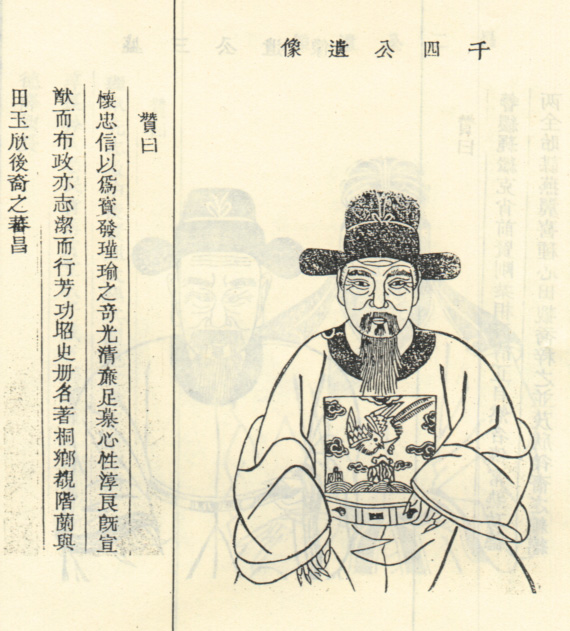 千四公遺像
贊曰
懷忠信以爲寳發瑾瑜之竒光清亷足慕心性淳良旣宣
猷而布政亦志潔而行芳功昭史册名著桐鄉覩階蘭與
田玉欣後裔之蕃昌